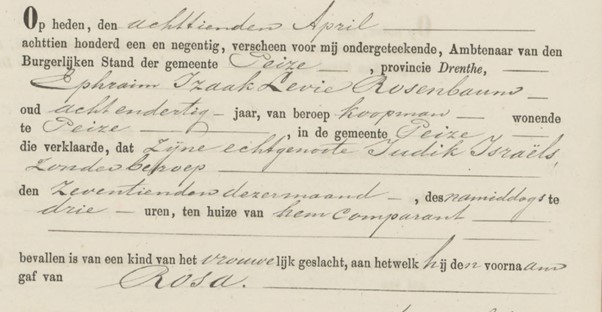 Op heden, den achttienden April
achttien honderd een en negentig, verscheen voor mij ondergeteekende, Ambtenaar van den
Burgerlijken Stand der gemeente Peize, provincie Drenthe,
Ephraim Izaak Levie Rosenbaum
oud achtendertig jaar, van beroep koopman wonende
te Peize in de gemeente Peize
die verklaarde, dat Zijne echtgenoote Judik Israëls,
zonder beroep
den Zeventienden dezer maand, des namiddags te
drie uren, ten huize van hem comparant
bevallen is van een kind van het vrouwelijk geslacht, aan hetwelk hij den voornaam
gaf van Rosa.